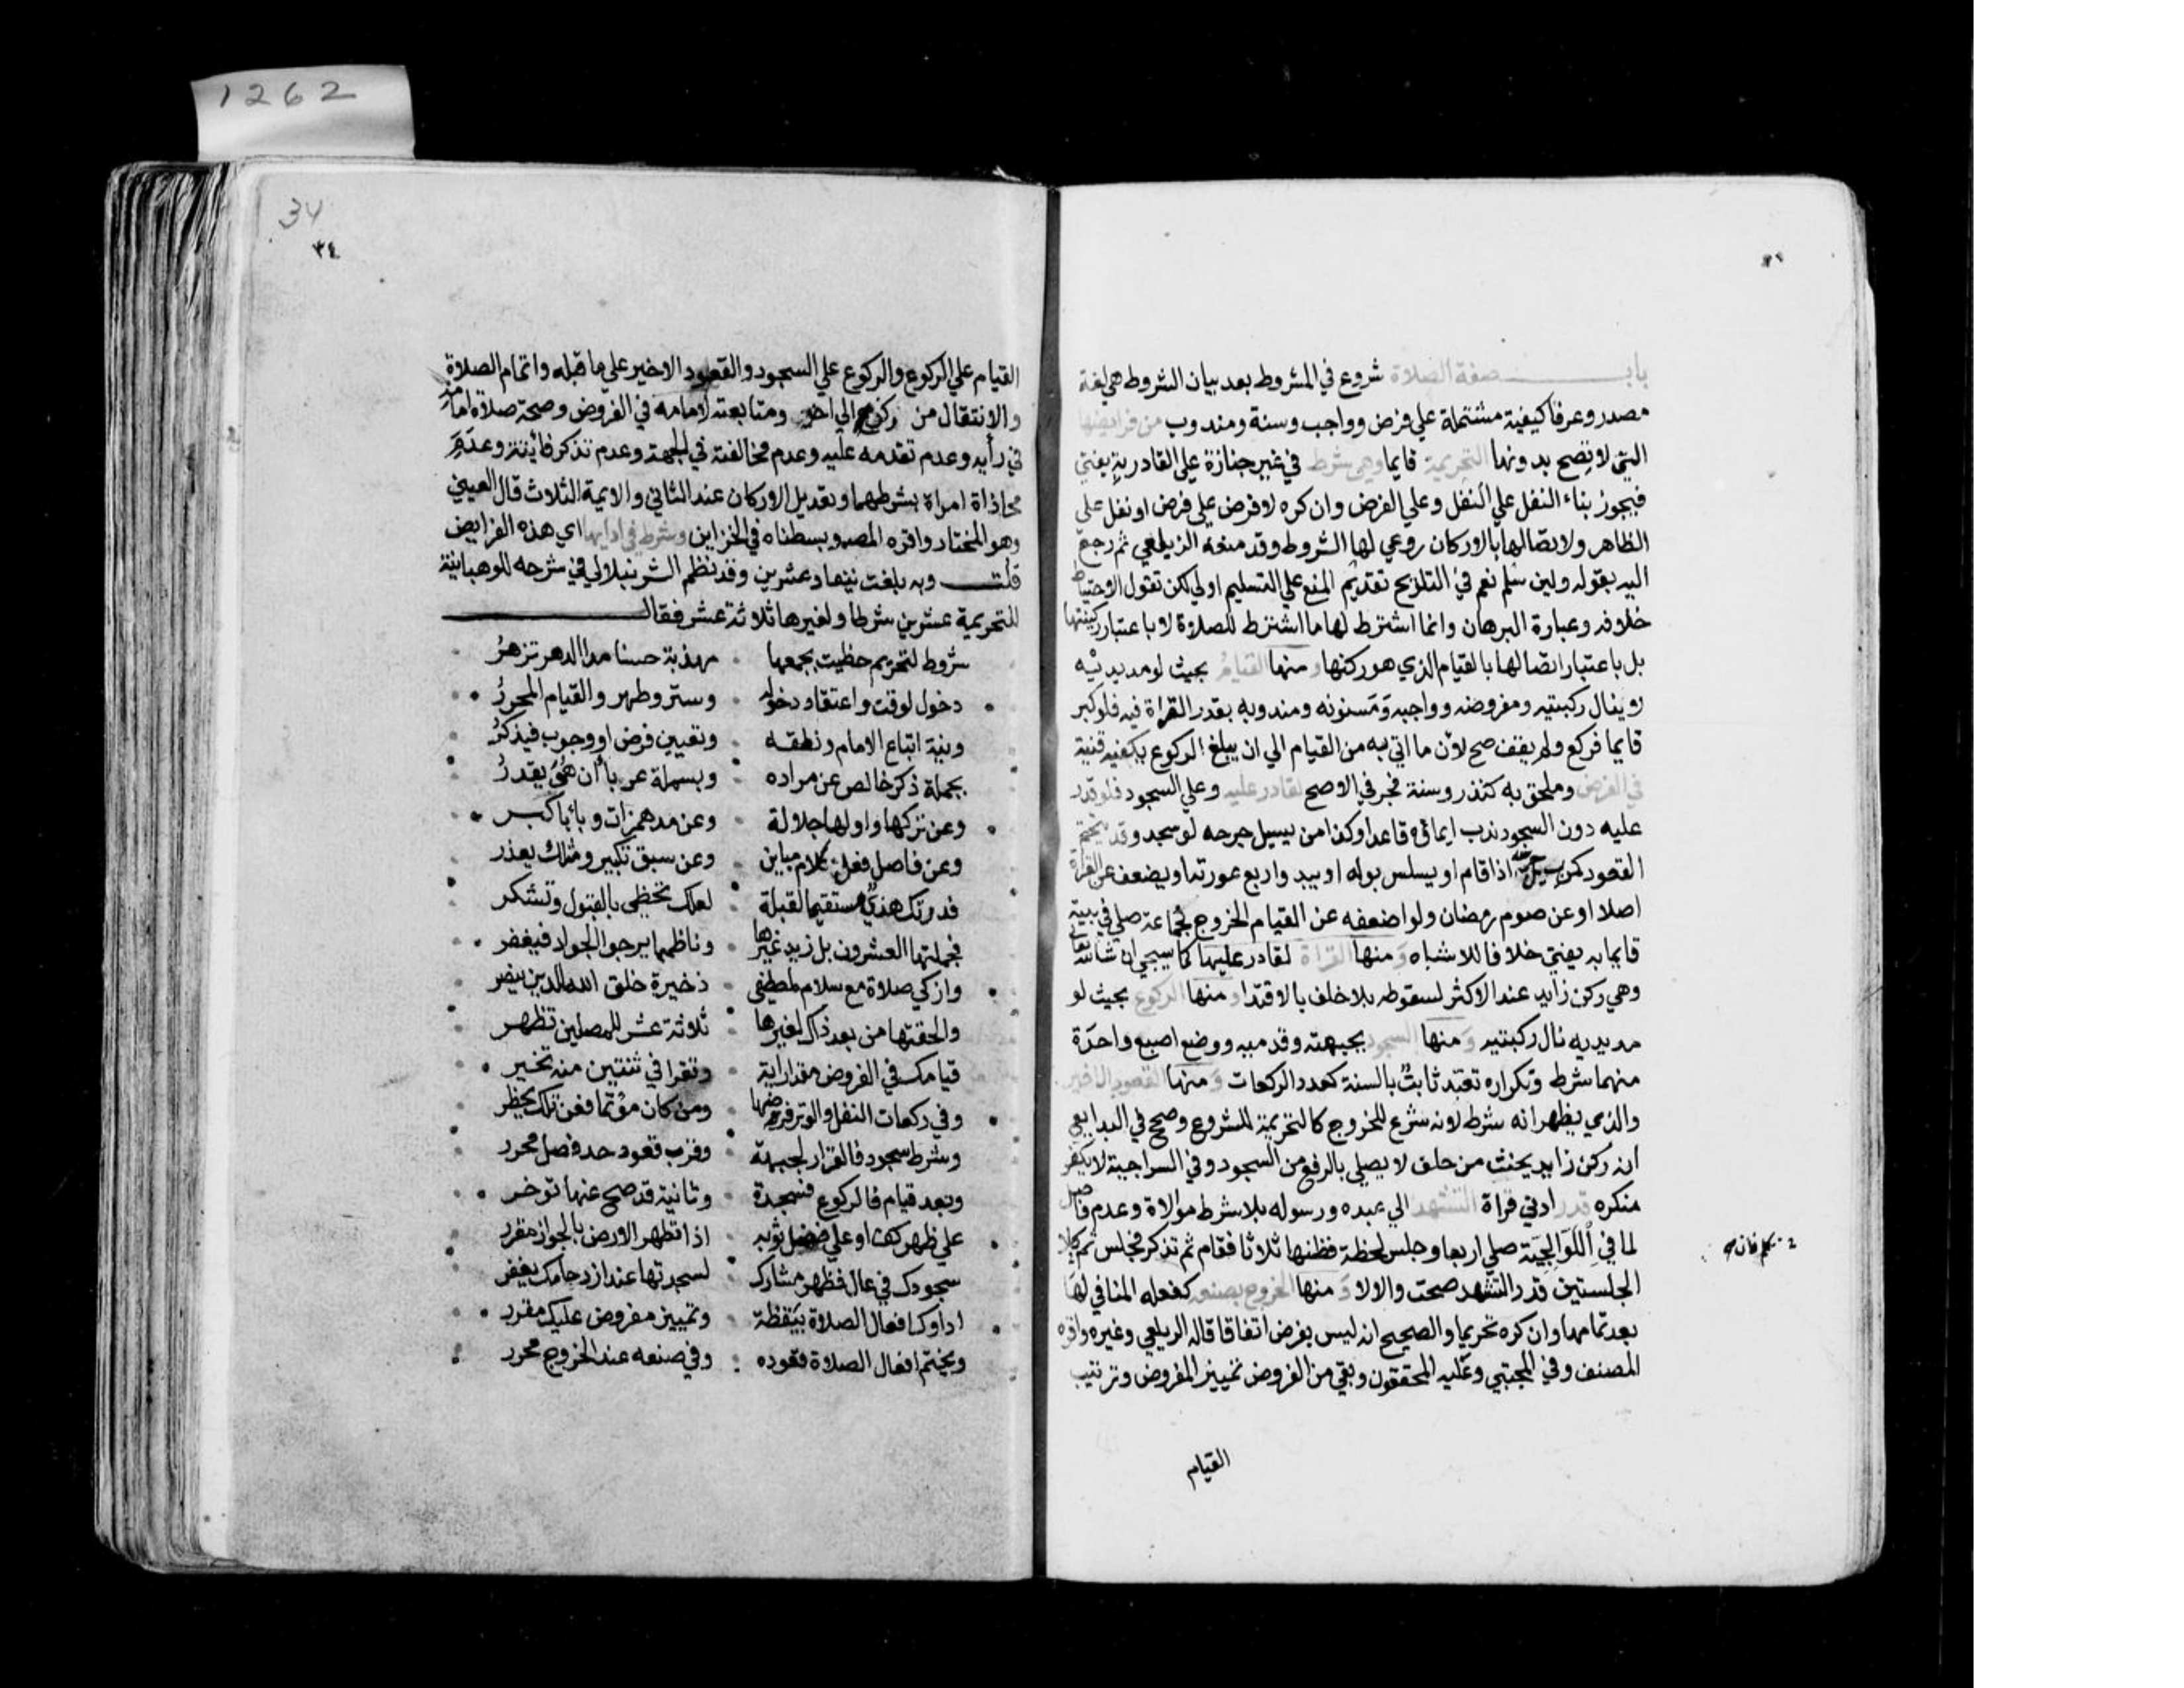 باب صفة الصلاة شروع في المشروط بعد بيان الشروط هي لغة
مصدر وعرفا كيفية مشتملة علي فرض وواجب وسنة ومندوب من فرايضها
التي لا تصح بدونها التحريمة قايما وهي شرط في غير جنازة علي القادر به يفتي
فيجوز بناء النفل علي النفل وعلي الفرض وان كره لا فرض علي فرض او نفل علي
الظاهر ولاتصالها بالاركان روعي لها الشروط وقد منعه الزيلعي ثم رجع
اليه بقوله ولين سلم نعم في التلويح تقديم المنع علي التسليم اولي لكن نقول الاحتياط
خلافه وعبارة البرهان وانما اشترط لها ما اشترط للصلاة لا باعتبار ركنيتها
بل باعتبار اتصالها بالقيام الذي هو ركنها ومنها القيام بحيث لو مد يديه
لا ينال ركبتيه ومفروضه وواجبه ومسنونه ومندوبه بقدر القراة فيه فلو كبر
قايما فركع ولم يقف صح لان ما اتي به من القيام الي ان يبلغ الركوع يكفيه قنية
في الفرض وملحق به كنذر وسنة فجر في الاصح لقادر عليه وعلي السجود فلو قدر
عليه دون السجود ندب ايماؤه قاعدا وكذا من يسيل جرحه لو سجد وقد يتحتم
القعود كمن يسيل جرحه اذا قام او يسلس بوله او يبدو اربع عورته او يضعف عن القراة
اصلا او عن صوم رمضان ولو اضعفه عن القيام الخروج لجماعة صلي في بيته
قايما به يفتي خلافا للاشباه ومنها القراة لقادر عليها كما سيجي ان شا الله تعالي
وهي ركن زايد عند الاكثر لسقوطه بلا خلف بالاقتدا ومنها الركوع بحيث لو
مد يديه نال ركبتيه ومنها السجود بجبهته وقدميه ووضع اصبع واحدة
منهما شرط وتكراره تعبد ثابت بالسنة كعدد الركعات ومنها القعود الاخير
والذي يظهر انه شرط لانه شرع للخروج كالتحريمة للشروع وصحح في البدايع
انه ركن زايد يحنث من حلف لا يصلي بالرفع من السجود وفي السراجية لا يكفر
منكره قدر ادني قراة التشهد الي عبده ورسوله بلا شرط موالاة وعدم فاصل
لما في اللوالجية صلي اربعا وجلس لحظة فظنها ثلاثا فقام ثم تذكر فجلس ثم كلا
تكلم فان
الجلستين قدر التشهد صحت والا لا ومنها الخروج بصنعه كفعله المنافي لها
بعد تمامها وان كره تحريما والصحيح انه ليس بفرض اتفاقا قاله الزيلعي وغيره واقره
المصنف وفي المجتبي وعليه المحققون وبقي من الفروض تمييز المفروض وترتيب
القيام
1262
34
٣٤
القيام علي الركوع والركوع علي السجود والقعود الاخير علي ما قبله واتمام الصلاة
والانتقال من ركن الي اخر ومتابعته لامامه في الفروض وصحة صلاة امامه
في رأيه وعدم تقدمه عليه وعدم مخالفته في الجهة وعدم تذكر فائتة وعدم
محاذاة امراة بشرطهما وتعديل الاركان عند الثاني والايمة الثلاث قال العيني
وهو المختار واقره المصـ وبسطناه في الخزاين وشرط في ادايها اي هذه الفرايض
قلت وبه بلغت نيفا وعشرين وقد نظم الشرنبلالي في شرحه للوهبانية
للتحريمة عشرين شرطا ولغيرها ثلاثة عشر فقال
شروط لتحريم حظيت بجمعها مهذبة حسنا مدا الدهر تزهر
دخول لوقت واعتقاد دخوله وستر وطهر والقيام المحرر
ونية اتباع الامام ونطقه وتعيين فرض او وجوب فيذكر
بجملة ذكر خالص عن مراده وبسملة عربا أن هو يقدر
وعن تركها واولها جلالة وعن مد همزات وبا باكبر
وعن فاصل فعل كلام مباين وعن سبق تكبير ومثلك يعذر
فدونك هذي مستقيما لقبلة لعلك تحظي بالقبول وتشكر
فجملتها العشرون بل زيد غيرها وناظمها يرجو الجواد فيغفر
وازكي صلاة مع سلام لمصطفي ذخيرة خلق الله للدين ينصر
والحقتها من بعد ذاك لغيرها ثلاثة عشر للمصلين تظهر
قيامك في الفروض مقدار اية وتقرا في ثنتين منه تخير
وفي ركعات النفل والوتر فرضها ومن كان مؤتما فعن تلك يحظر
وشرط سجود فالقرار لجبهة وقرب قعود حد فصل محرر
وبعد قيام فالركوع فسجدة وثانية قد صح عنها توخر
علي ظهر كف او علي فضل ثوبه اذا تطهر الارض بالجواز مقرر
سجودك في عال فظهر مشارك لسجدتها عند ازدحامك يغفر
اداوك افعال الصلاة بيقظة وتمييز مفروض عليك مقرر
ويختم افعال الصلاة قعوده وفي صنعه عند الخروج محرر